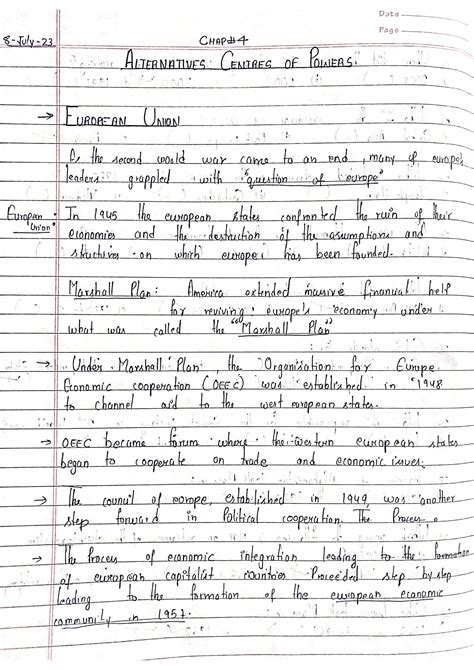 Date
Page
8-July-23
CHAP#4
ALTERNATIVES CENTRES OF POWERS.
→ EUROPEAN UNION
As the second world war came to an end, many of europe's
leaders grappled with "question of europe"
European Union: In 1945 the european states confronted the ruin of their
economies and the destruction of the assumptions and
structures on which europe has been founded.
Marshall Plan: America extended massive financial help
for reviving europe's economy under
what was called the "Marshall Plan"
→ Under Marshall Plan, the Organisation for Europe
Economic cooperation (OEEC) was established in 1948
to channel aid to the west european states.
→ OEEC became forum where the western european states
began to cooperate on trade and economic issues.
→ The council of europe, established in 1949, was another
step forward in Political cooperation. The Process
→ The Process of economic integration leading to the formation
of european capitalist countries Proceeded step by step
leading to the formation of the european economic
community in 1957.